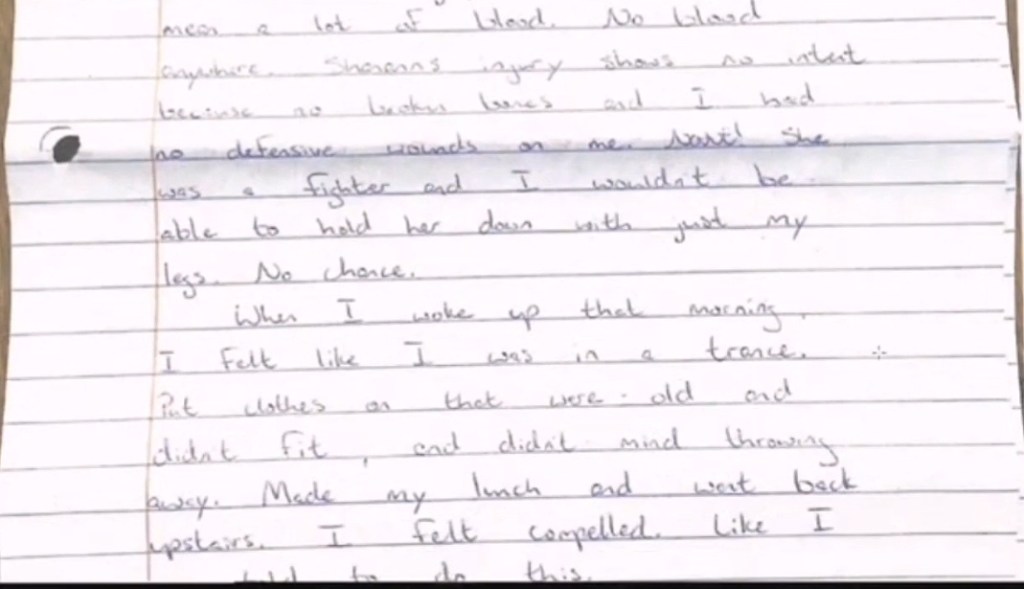 mean a lot of blood. No blood
anywhere. Shananns injury shows no intent
because no broken bones and I had
no defensive wounds on me. She
was a fighter and I wouldn't be
able to hold her down with just my
legs. No chance.
When I woke up that morning,
I felt like I was in a trance.
Put clothes on that were old and
didnt fit, and didn't mind throwing
away. Made my lunch and went back
upstairs. I felt compelled. Like I
told to do this.